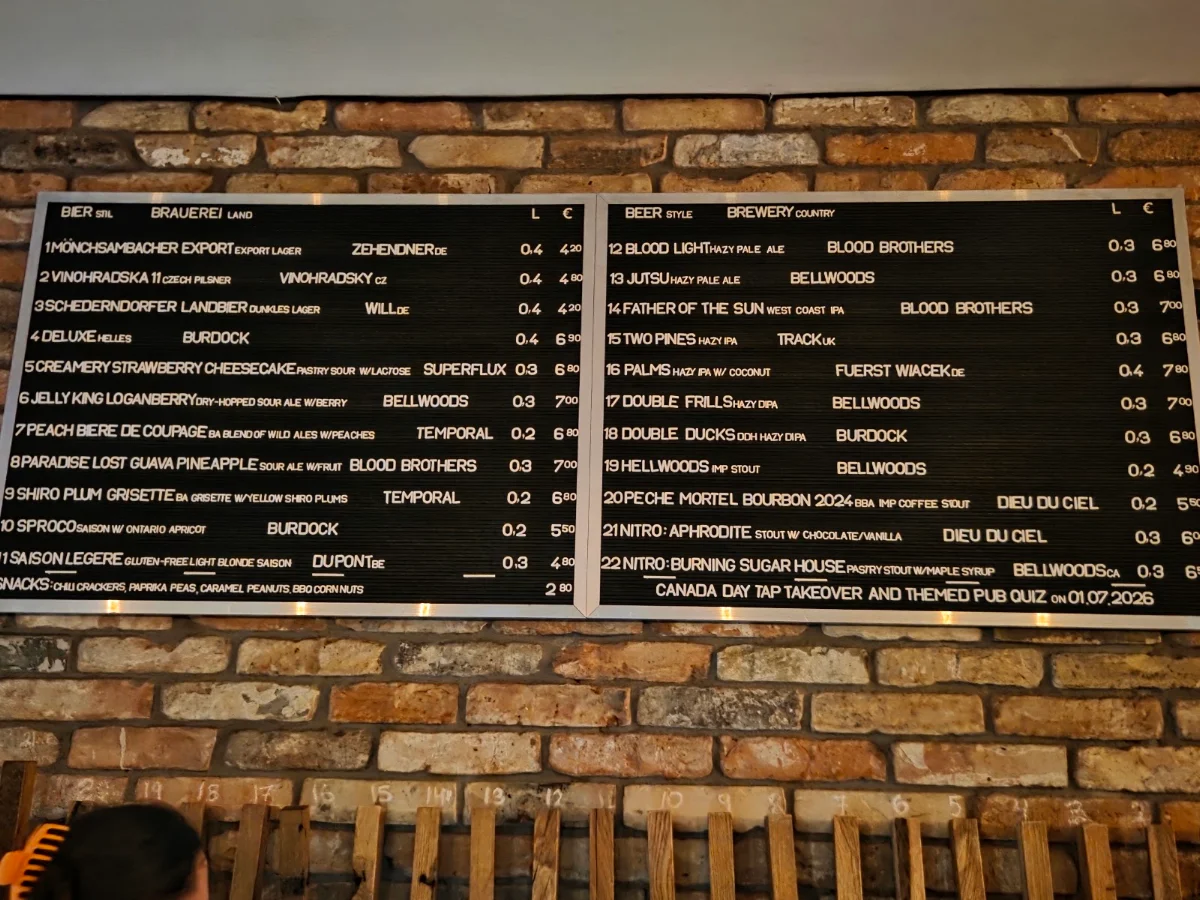 BIER STIL BRAUEREI LAND L €
1 MÖNCHSAMBACHER EXPORT EXPORT LAGER ZEHENDNER DE 0,4 4 20
2 VINOHRADSKA 11 CZECH PILSNER VINOHRADSKY CZ 0,4 4 80
3 SCHEDERNDORFER LANDBIER DUNKLES LAGER WILL DE 0,4 4 20
4 DELUXE HELLES BURDOCK 0,4 6 90
5 CREAMERY STRAWBERRY CHEESECAKE PASTRY SOUR W/LACTOSE SUPERFLUX 0,3 6 80
6 JELLY KING LOGANBERRY DRY-HOPPED SOUR ALE W/BERRY BELLWOODS 0,3 7 00
7 PEACH BIERE DE COUPAGE BA BLEND OF WILD ALES W/PEACHES TEMPORAL 0,2 6 80
8 PARADISE LOST GUAVA PINEAPPLE SOUR ALE W/FRUIT BLOOD BROTHERS 0,3 7 00
9 SHIRO PLUM GRISETTE BA GRISETTE W/YELLOW SHIRO PLUMS TEMPORAL 0,2 6 80
10 SPROCO SAISON W/ ONTARIO APRICOT BURDOCK 0,2 5 50
11 SAISON LEGERE GLUTEN-FREE LIGHT BLONDE SAISON DUPONT BE 0,3 4 80
SNACKS: CHILI CRACKERS, PAPRIKA PEAS, CARAMEL PEANUTS, BBQ CORN NUTS 2 80
BEER STYLE BREWERY COUNTRY L €
12 BLOOD LIGHT HAZY PALE ALE BLOOD BROTHERS 0,3 6 80
13 JUTSU HAZY PALE ALE BELLWOODS 0,3 6 80
14 FATHER OF THE SUN WEST COAST IPA BLOOD BROTHERS 0,3 7 00
15 TWO PINES HAZY IPA TRACK UK 0,3 6 80
16 PALMS HAZY IPA W/ COCONUT FUERST WIACEK DE 0,4 7 80
17 DOUBLE FRILLS HAZY DIPA BELLWOODS 0,3 7 00
18 DOUBLE DUCKS DDH HAZY DIPA BURDOCK 0,3 6 80
19 HELLWOODS IMP STOUT BELLWOODS 0,2 4 90
20 PECHE MORTEL BOURBON 2024 BBA IMP COFFEE STOUT DIEU DU CIEL 0,2 5
21 NITRO: APHRODITE STOUT W/ CHOCOLATE/VANILLA DIEU DU CIEL 0,3 6
22 NITRO: BURNING SUGAR HOUSE PASTRY STOUT W/MAPLE SYRUP BELLWOODS CA 0,3 6
CANADA DAY TAP TAKEOVER AND THEMED PUB QUIZ ON 01.07.2026
19 18 17 16 15 14 13 12 11 10 9 8 7 6 5 4 3 2